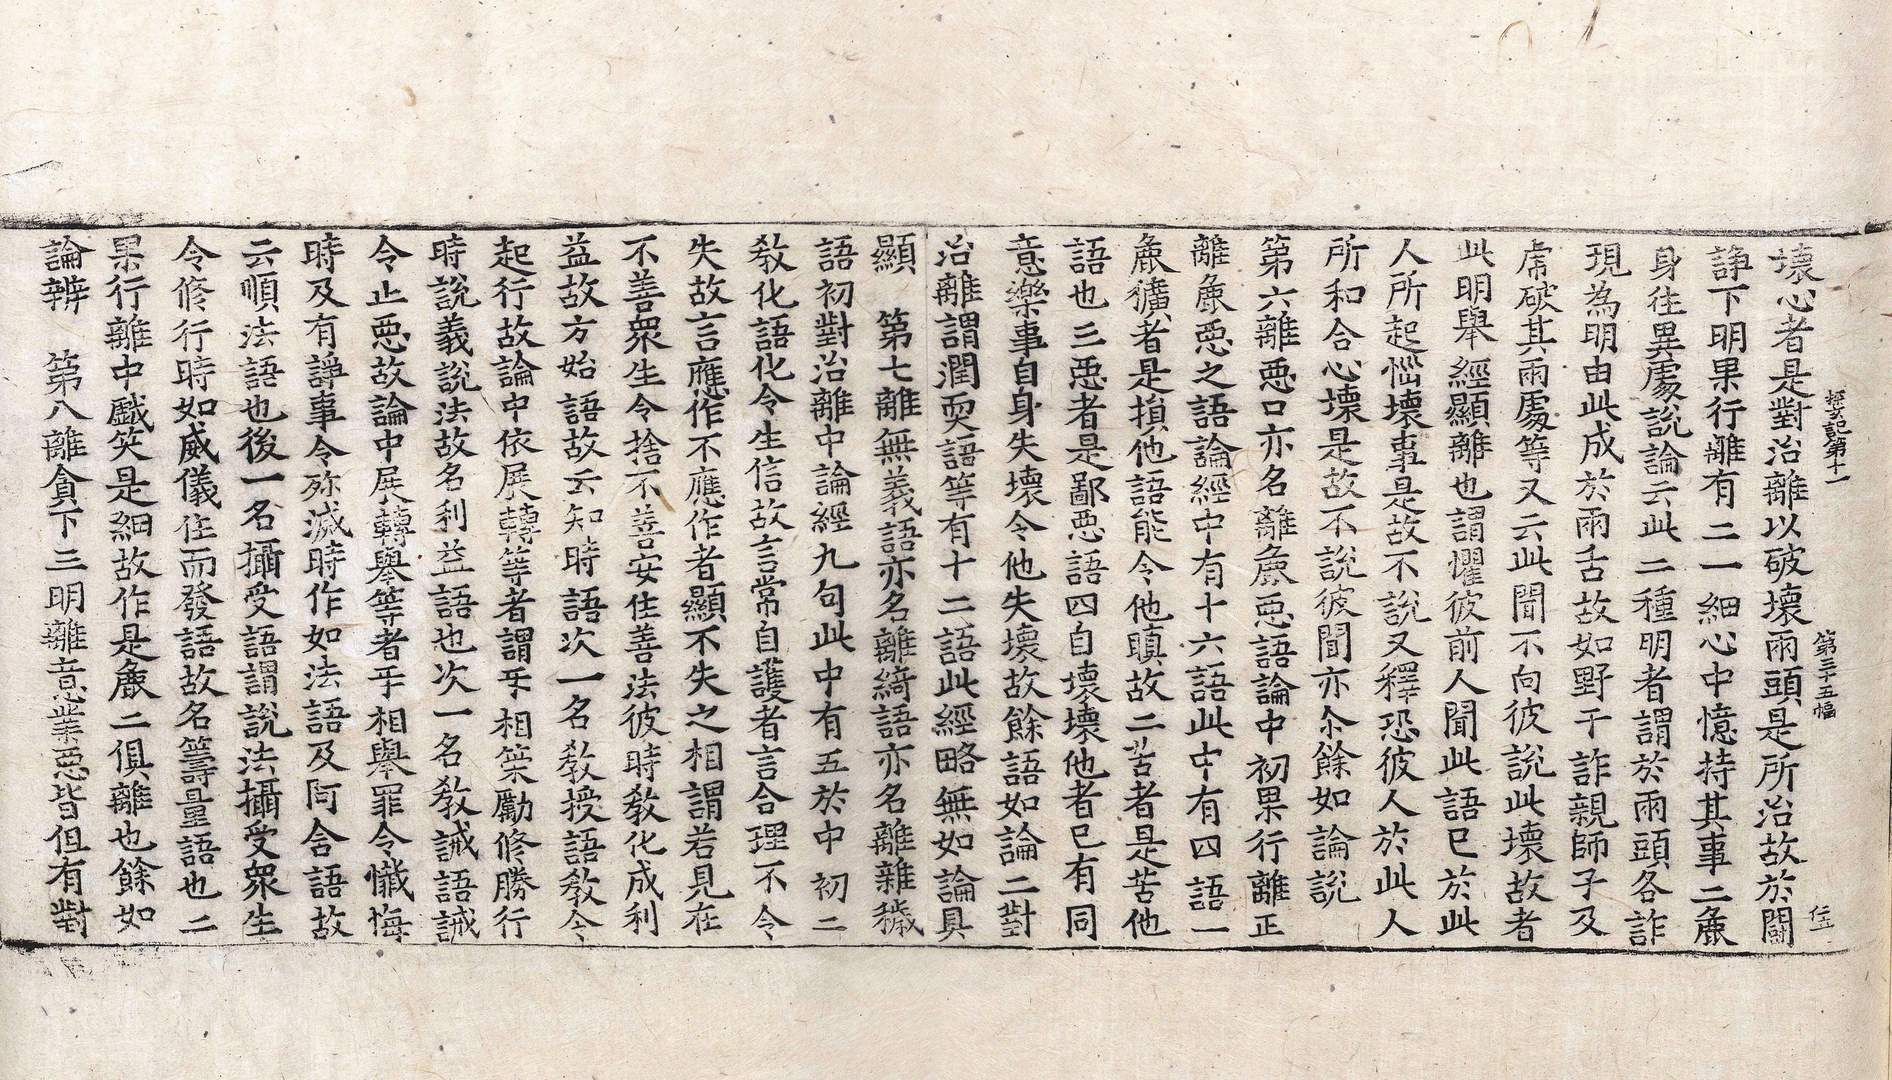 探玄記第十一 第三十五幅 仁
壞心者是對治離以破壞兩頭是所治故於鬪
諍下明果行離有二一細心中憶持其事二麁
身往異處說論云此二種明者謂於兩頭各詐
現為明由此成於兩舌故如野干詐親師子及
虎破其兩處等又云此聞不向彼說此壞故者
此明舉經顯離也謂懼彼前人聞此語已於此
人所起惱壞事是故不說又釋恐彼人於此人
所和合心壞是故不說彼聞亦尒餘如論說
第六離惡口亦名離麁惡語論中初果行離正
離麁惡之語論經中有十六語此中有四語一
麁獷者是損他語能令他瞋故二苦者是苦他
語也三惡者是鄙惡語四自壞壞他者已有同
意樂事自身失壞令他失壞故餘語如論二對
治離謂潤耎語等有十二語此經略無如論具
顯 第七離無義語亦名離綺語亦名離雜穢
語初對治離中論經九句此中有五於中初二
教化語化令生信故言常自護者言合理不令
失故言應作不應作者顯不失之相謂若見在
不善眾生令捨不善安住善法彼時教化成利
益故方始語故云知時語次一名教授語教令
起行故論中依展轉等者謂㸦相策勵修勝行
時說義說法故名利益語也次一名教誡語誡
令止惡故論中展轉舉等者㸦相舉罪令懺悔
時及有諍事令殄滅時作如法語及阿含語故
云順法語也後一名攝受語謂說法攝受眾生
令修行時如威儀住而發語故名籌量語也二
果行離中戲笑是細故作是麁二俱離也餘如
論辨 第八離貪下三明離意業惡皆但有對